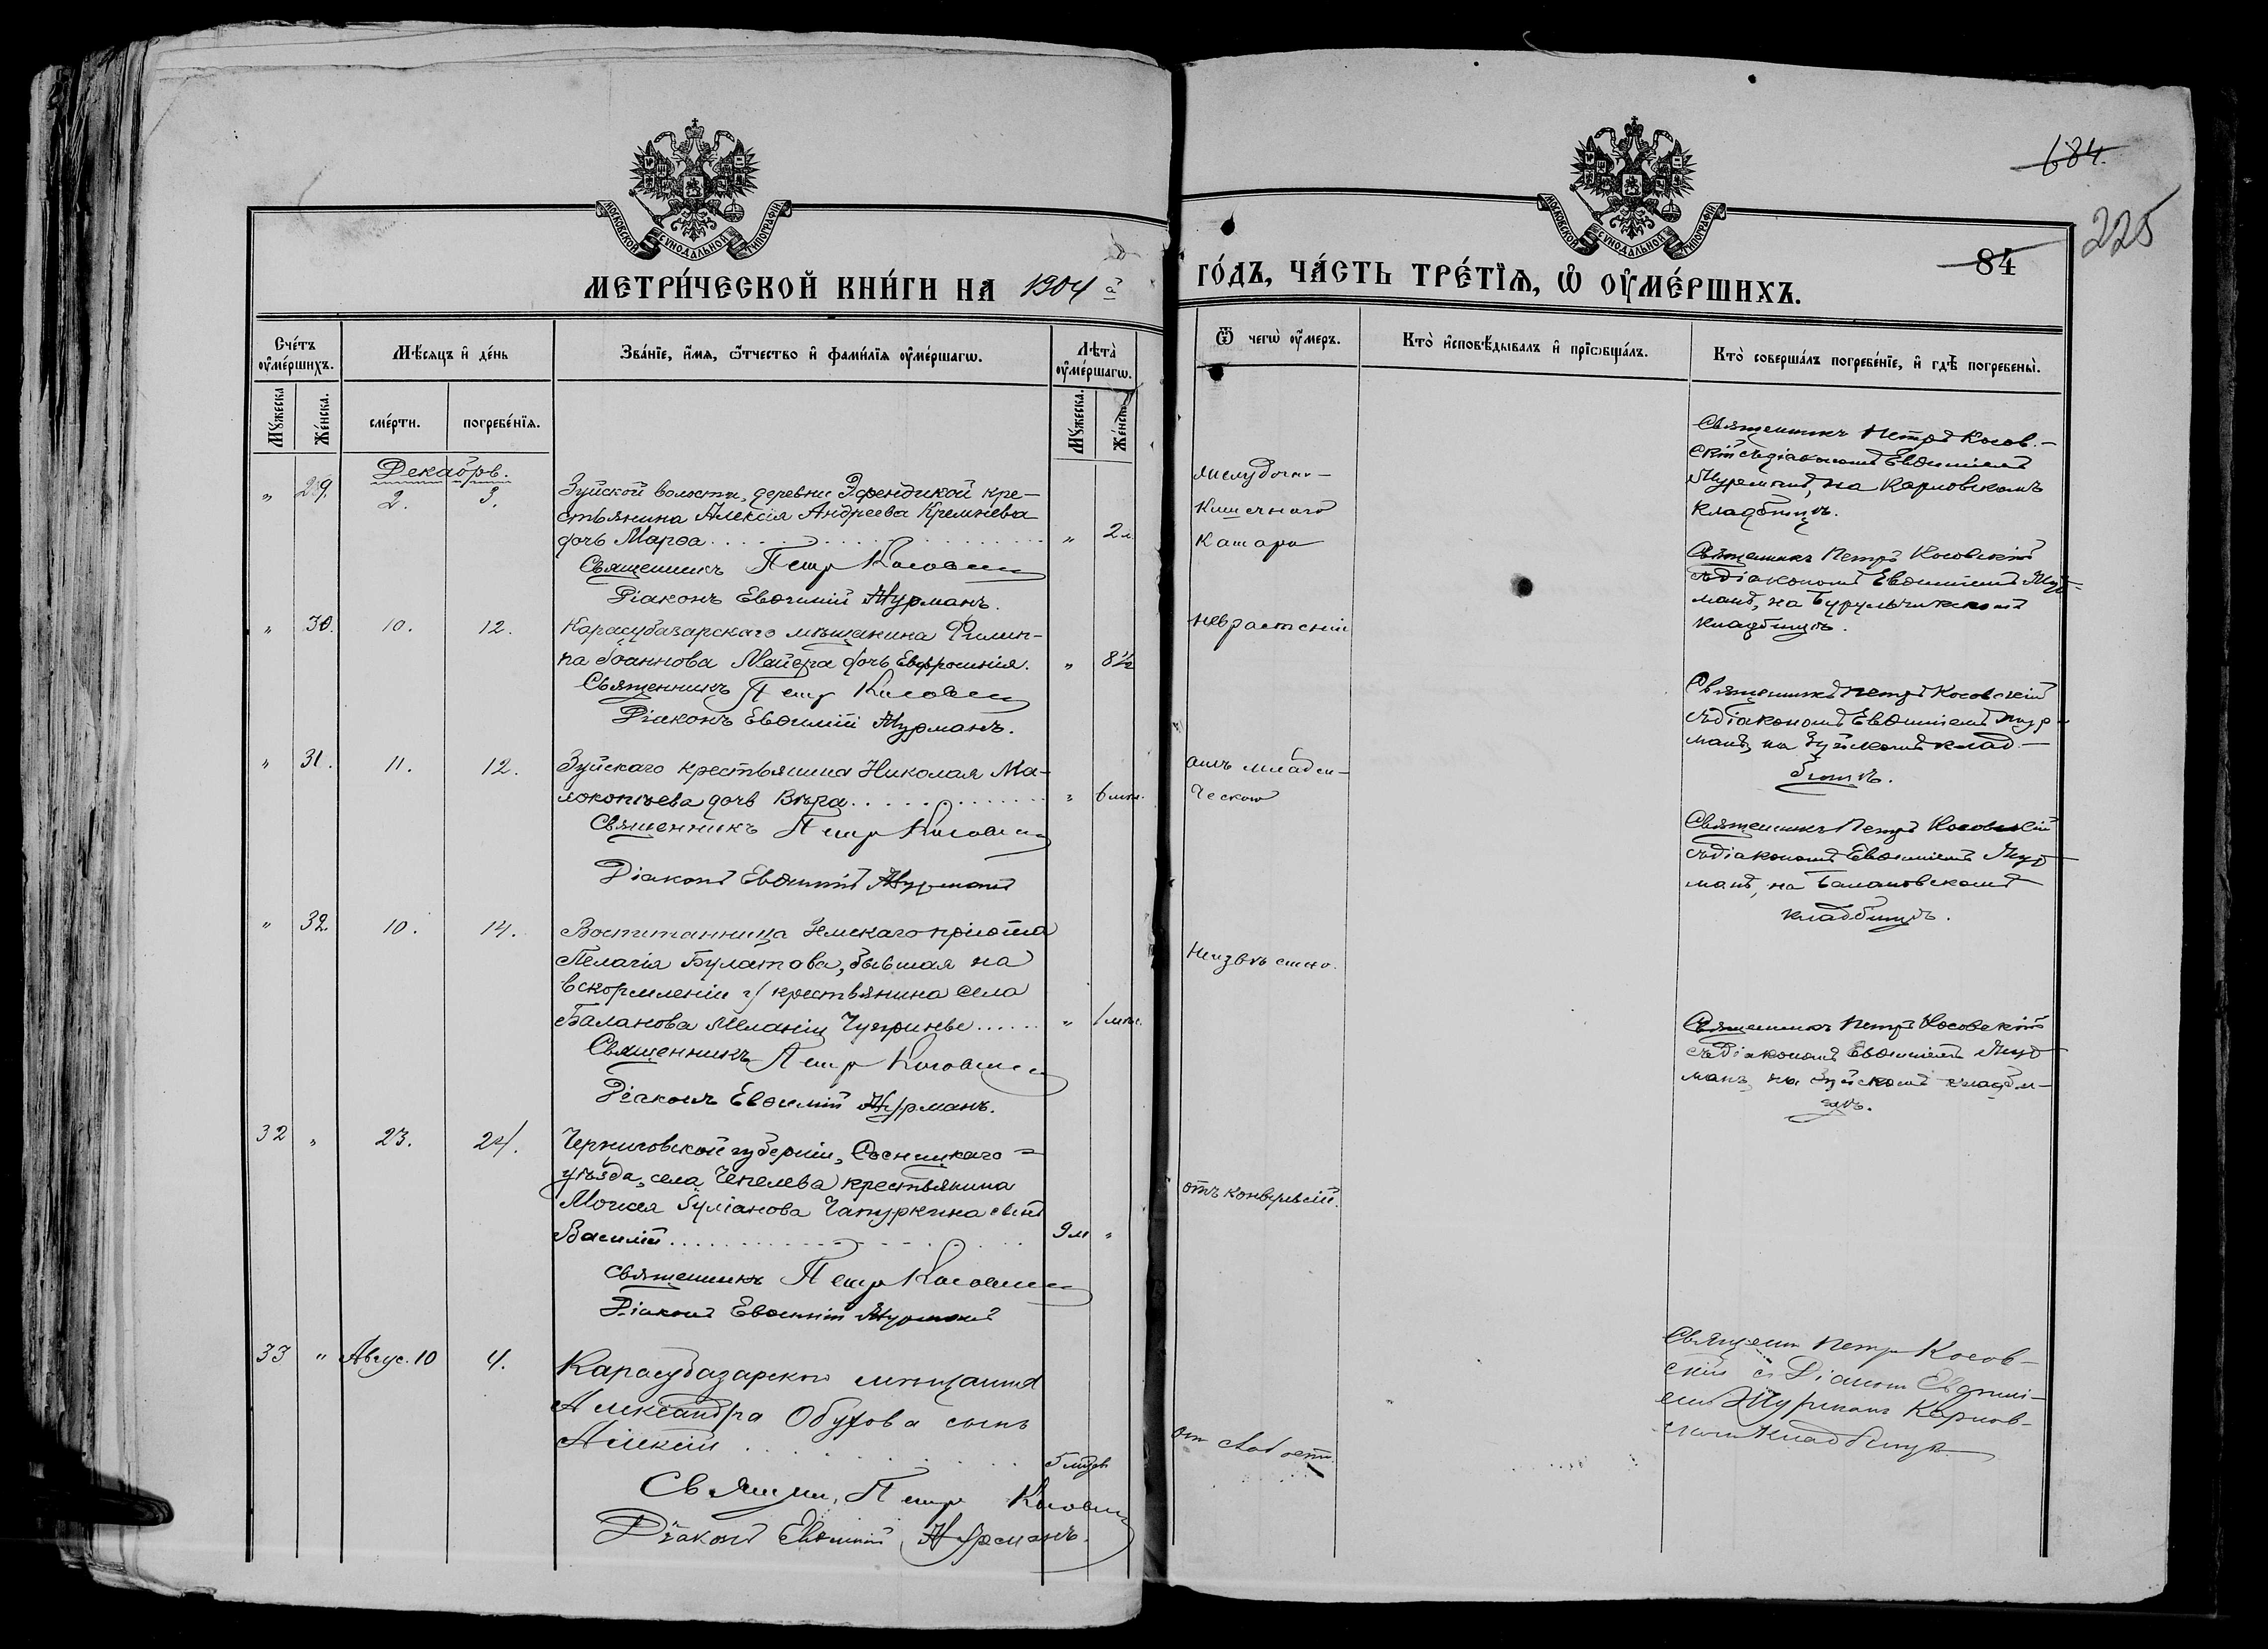 684.
225
84
МОСКОВСКОЙ СѴНОДАЛЬНОЙ ТИПОГРАФІИ
МОСКОВСКОЙ СѴНОДАЛЬНОЙ ТИПОГРАФІИ
МЕТРИ́ЧЕСКОЙ КНИ́ГИ НА 1904 й
ГО́ДЪ, ЧА́СТЬ ТРЕ́ТЇѦ, Ѡ҆ ОУ҆МЕ́РШИХЪ.
Сче́тъ оу҆ме́ршихъ.
Мѣ́сѧцъ и҆ де́нь
Зва́нїе, и҆́мѧ, ѻ҆́тчество и҆ фами́лїѧ оу҆ме́ршагѡ.
Лѣта̀ оу҆ме́ршагѡ.
Ѿ чегѡ̀ оу҆́меръ.
Кто̀ и҆сповѣ́дывалъ и҆ прїѡбща́лъ.
Кто̀ соверша́лъ погребе́нїе, и҆ гдѣ̀ погребены̀.
Мꙋ́жеска
Же́нска.
сме́рти.
погребе́нїѧ.
Мꙋ́жеска.
Же́нска.
Декабрь.
" 29. 2. 3.
Зуйской волости, деревни Эфендикой кре-
стьянина Алексія Андреева Кремнёва
дочь Марѳа " 2 л.
Священникъ Петр Косовскій
Діаконъ Евѳимій Мурманъ.
желудочно-
кишечнаго
катара
Священникъ Петръ Косов-
скій съ діакономъ Евѳиміемъ
Мурманъ, на Карловскомъ
кладбищѣ.
" 30. 10. 12.
Карасубазарскаго мѣщанина Филип-
па Іоаннова Мейера дочь Евфросинія. " 8½
Священникъ Петр Косовскій
Діаконъ Евѳимій Мурманъ.
неврастеніи
Священникъ Петръ Косовскій
съ діакономъ Евѳиміемъ Мур-
манъ, на Бурульчикскомъ
кладбищѣ.
" 31. 11. 12.
Зуйскаго крестьянина Николая Ма-
локопѣева дочь Вѣра " 6 мѣс.
Священникъ Петр Косовскій
Діаконъ Евѳимій Мурманъ
младен-
ческой
Священникъ Петръ Косовскій
съ діакономъ Евѳиміемъ Мур-
манъ, на Зуйскомъ клад-
бищѣ.
" 32. 10. 14.
Воспитанница Земскаго пріюта
Пелагія Булатова, бывшая на
вскормленіи у крестьянина села
Баланова Меланіи " 1 мѣс.
Священникъ Петр Косовскій
Діаконъ Евѳимій Мурманъ.
неизвѣстно.
Священникъ Петръ Косовскій
съ діакономъ Евѳиміемъ Мур-
манъ, на Балановскомъ
кладбищѣ.
32 " 23. 24.
Черниговской губерніи, Сосницкаго
уѣзда, села Чепелева крестьянина
Моисея Іуліанова Чапуркина сынъ
Василій 9 м "
Священникъ Петр Косовскій
Діаконъ Евѳимій Мурманъ
отъ конвульсій.
Священникъ Петръ Косовскій
съ діакономъ Евѳиміемъ Мур-
манъ, на Зуйскомъ кладби-
щѣ.
33 " Авгус. 10 4.
Карасубазарскаго мѣщанина
Александра Обухова сынъ
Алексій 5 мѣс
Священ. Петр Косовскій
Діаконъ Евѳимій Мурманъ.
от слабости
Священ Петръ Косов-
скій с Діакон Евѳимі-
ем Мурманъ Карлов-
ском кладбищѣ